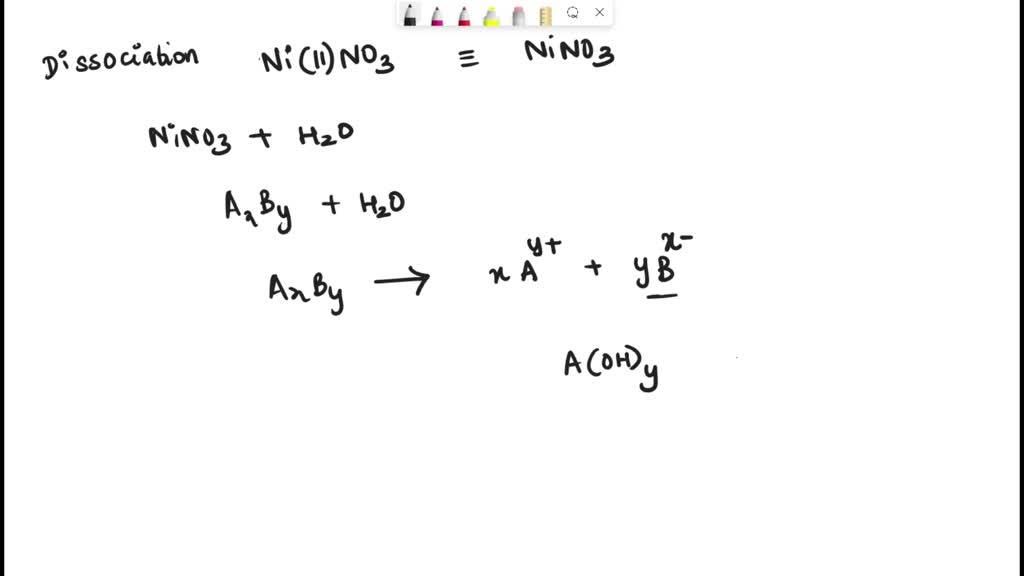 Dissociation Ni(II)NO₃ ≡ NiNO₃
NiNO₃ + H₂O
AₓBy + H₂O
AₓBy → xA^y+ + yB^x-
A(OH)y